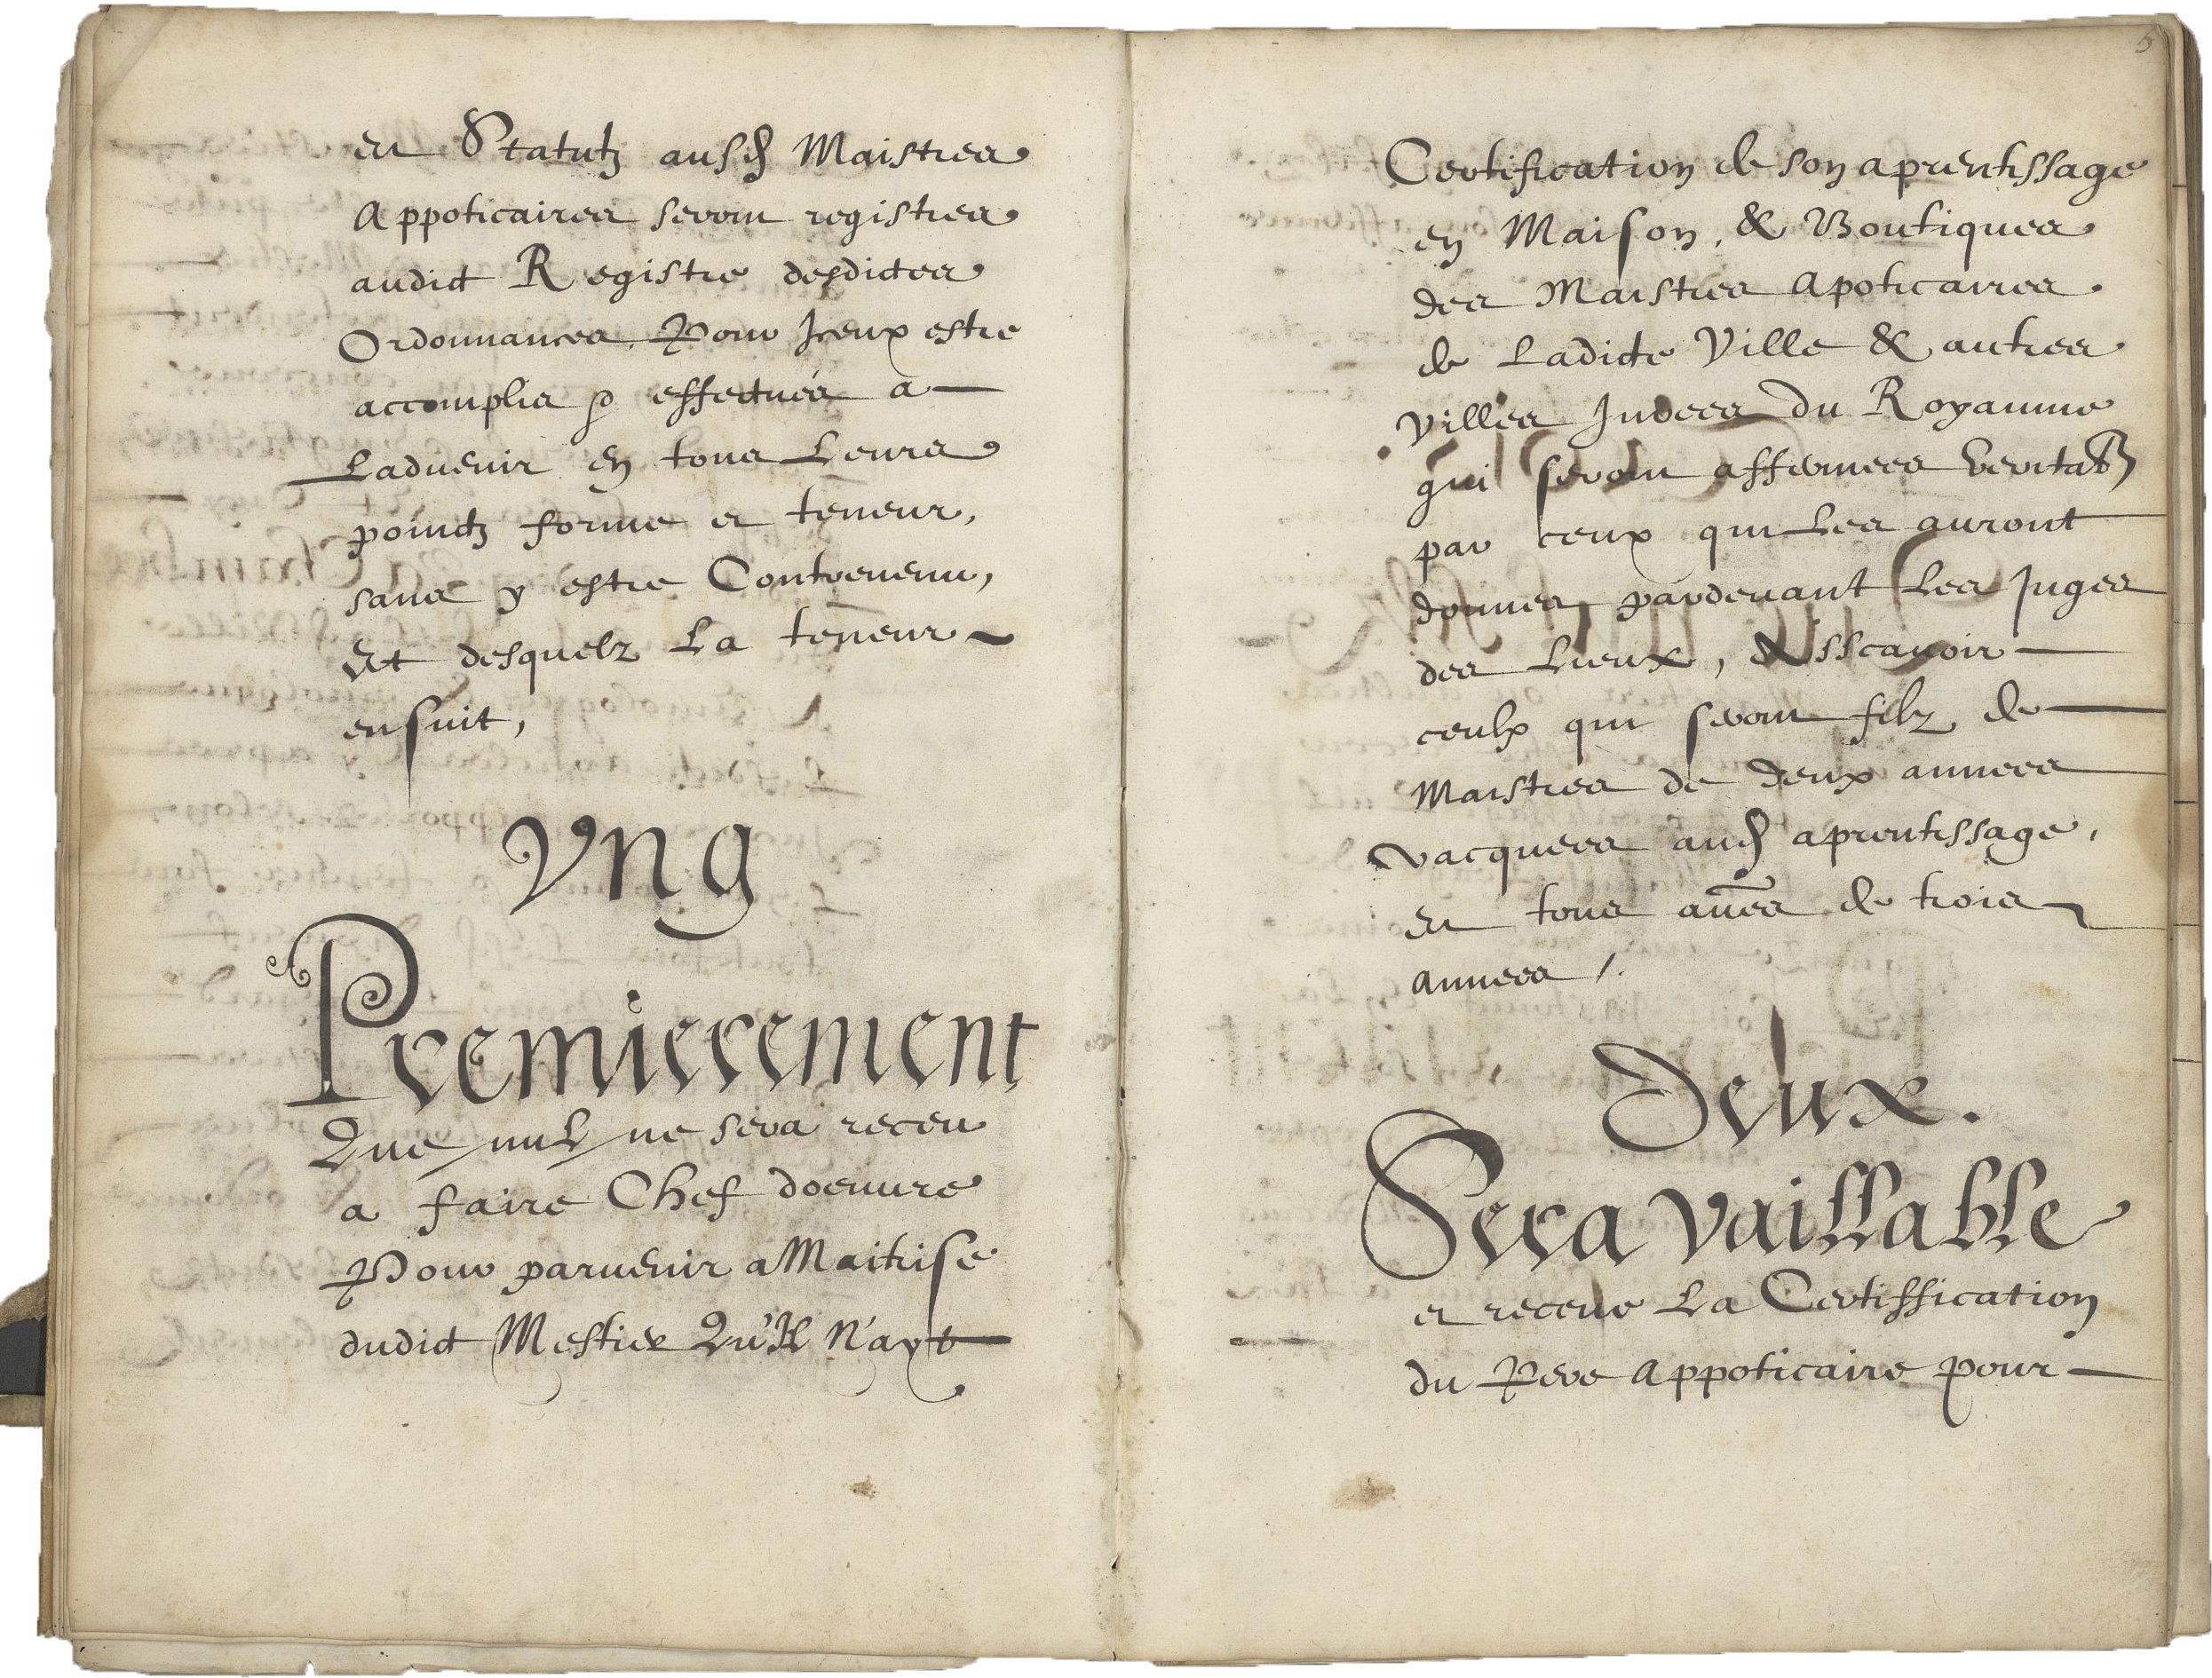 et Statutz ausd Maistres
Appoticaires seront registres
audict Registre desdictes
Ordonnances. Pour Iceux estre
accomplis & effectués a
Ladvenir en tous Leurs
poinctz forme et teneur,
sans y estre Contrevenu,
Et desquelz La teneur
ensuit,
Vng
Premierement
Que nul ne sera receu
a faire Chef doeuvre
Pour parvenir a Maitrise
dudict Mestier Qu'Il N'ayt
5
Certification de son aprentissage
en Maison, & Boutiques
des Maistres Apoticaires
de Ladicte Ville & autres
Villes Jurees du Royaume
qui seront affermees veritab
par ceux qui Les auront
donnes pardevant Les Juges
des Lieux, Asscavoir
ceulx qui seront filz de
Maistres de deux annees
vacquees aud aprentissage,
et tous aues de trois
annees /.
Deux.
Sera vaillable
et receue La Certiffication
du Pere Appoticaire pour